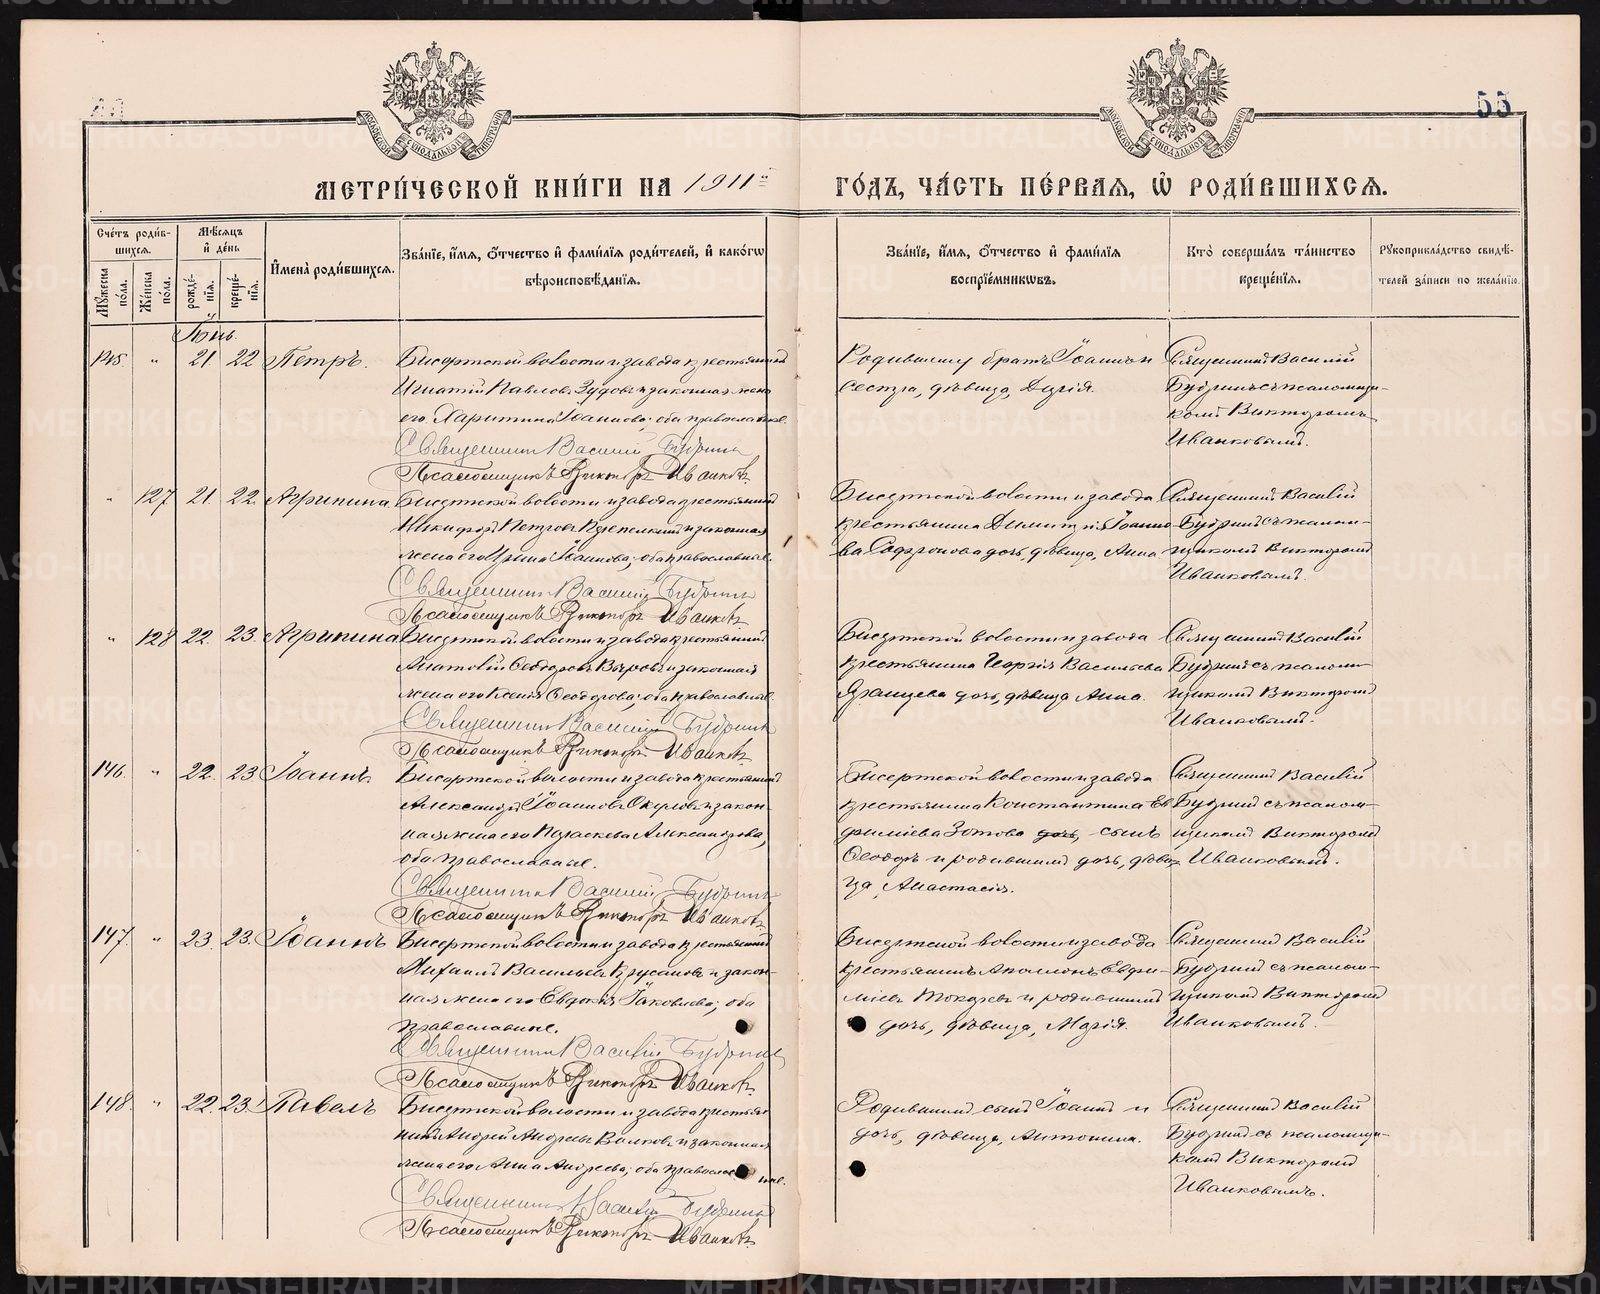 55
МЕТРИ́ЧЕСКОЙ КНИ́ГИ НА 1911й ГО́ДЪ, ЧА́СТЬ ПЕ́РВАЯ, Ѡ РОДИ́ВШИХСЯ.
Сче́тъ роди́в-
шихся.
Мѣ́сяцъ
и де́нь
Мꙋжеска по́ла.
Же́нска по́ла.
рожде́-
нїя.
креще́-
нїя.
И҆мена̀ роди́вшихся.
Зва́нїе, и҆́мя, ѻ҆́тчество и҆ фами́лїя роди́телей, и҆ како́гѡ
вѣроисповѣ́данїя.
Зва́нїе, и҆́мя, ѻ҆́тчество и҆ фами́лїя
воспрїе́мникѡвъ.
Кто̀ соверша́лъ та́инство
креще́нїя.
Рꙋкоприкла́дство свидѣ́-
телей за́писи по жела́нїю.
Іюнь.
145. " 21. 22 Петръ.
Бисертской волости и завода крестьянинъ
Игнатій Павловъ и законная жена
его Харитина Іоаннова; оба православные.
Священникъ Василій Будринъ
Псаломщикъ Викторъ Иванковъ.
Родившему братъ Іоаннъ и
сестра, дѣвица, Дарія.
Священникъ Василій
Будринъ съ псаломщи-
комъ Викторомъ
Иванковымъ.
" 127 21. 22. Агрипина.
Бисертской волости и завода крестьянинъ
Никифоръ Петровъ и законная
жена его Ирина Іоаннова; оба православные.
Священникъ Василій Будринъ
Псаломщикъ Викторъ Иванковъ.
Бисертской волости и завода
крестьянина Димитрія Іоанно-
ва Софронова дочь, дѣвица, Анна
Священникъ Василій
Будринъ съ псалом-
щикомъ Викторомъ
Иванковымъ.
" 128 22. 23. Агрипина
Бисертской волости и завода крестьянинъ
Анатолій Ѳеодоровъ и законная
жена его Ксенія Ѳеодорова; оба православные.
Священникъ Василій Будринъ
Псаломщикъ Викторъ Иванковъ.
Бисертской волости и завода
крестьянина Георгія Васильева
дочь, дѣвица Анна.
Священникъ Василій
Будринъ съ псалом-
щикомъ Викторомъ
Иванковымъ.
146. " 22. 23 Іоаннъ.
Бисертской волости и завода крестьянинъ
Александръ Іоанновъ и закон-
ная жена его Параскева Александрова,
оба православные.
Священникъ Василій Будринъ
Псаломщикъ Викторъ Иванковъ.
Бисертской волости и завода
крестьянина Константина Ев-
фиміева Зотова дочь, сынъ
Ѳеодоръ и родившимъ дочь, дѣви-
ца, Анастасія.
Священникъ Василій
Будринъ съ псалом-
щикомъ Викторомъ
Иванковымъ.
147. " 23. 23. Іоаннъ
Бисертской волости и завода крестьянинъ
Михаилъ Васильевъ и закон-
ная жена его Евдокія Іаковлева; оба
православные.
Священникъ Василій Будринъ
Псаломщикъ Викторъ Иванковъ.
Бисертской волости и завода
крестьянинъ Аполлонъ Евфи-
міевъ Токаревъ и родившимъ
дочь, дѣвица, Марія.
Священникъ Василій
Будринъ съ псалом-
щикомъ Викторомъ
Иванковымъ.
148. " 22. 23. Павелъ
Бисертской волости и завода крестья-
нинъ Андрей Андреевъ Волковъ и законная
жена его Анна Андреева; оба православные.
Священникъ Василій Будринъ
Псаломщикъ Викторъ Иванковъ.
Родившимъ сынъ Іоаннъ и
дочь, дѣвица, Антонина.
Священникъ Василій
Будринъ съ псаломщи-
комъ Викторомъ
Иванковымъ.
METRIKI.GASO-URAL.RU